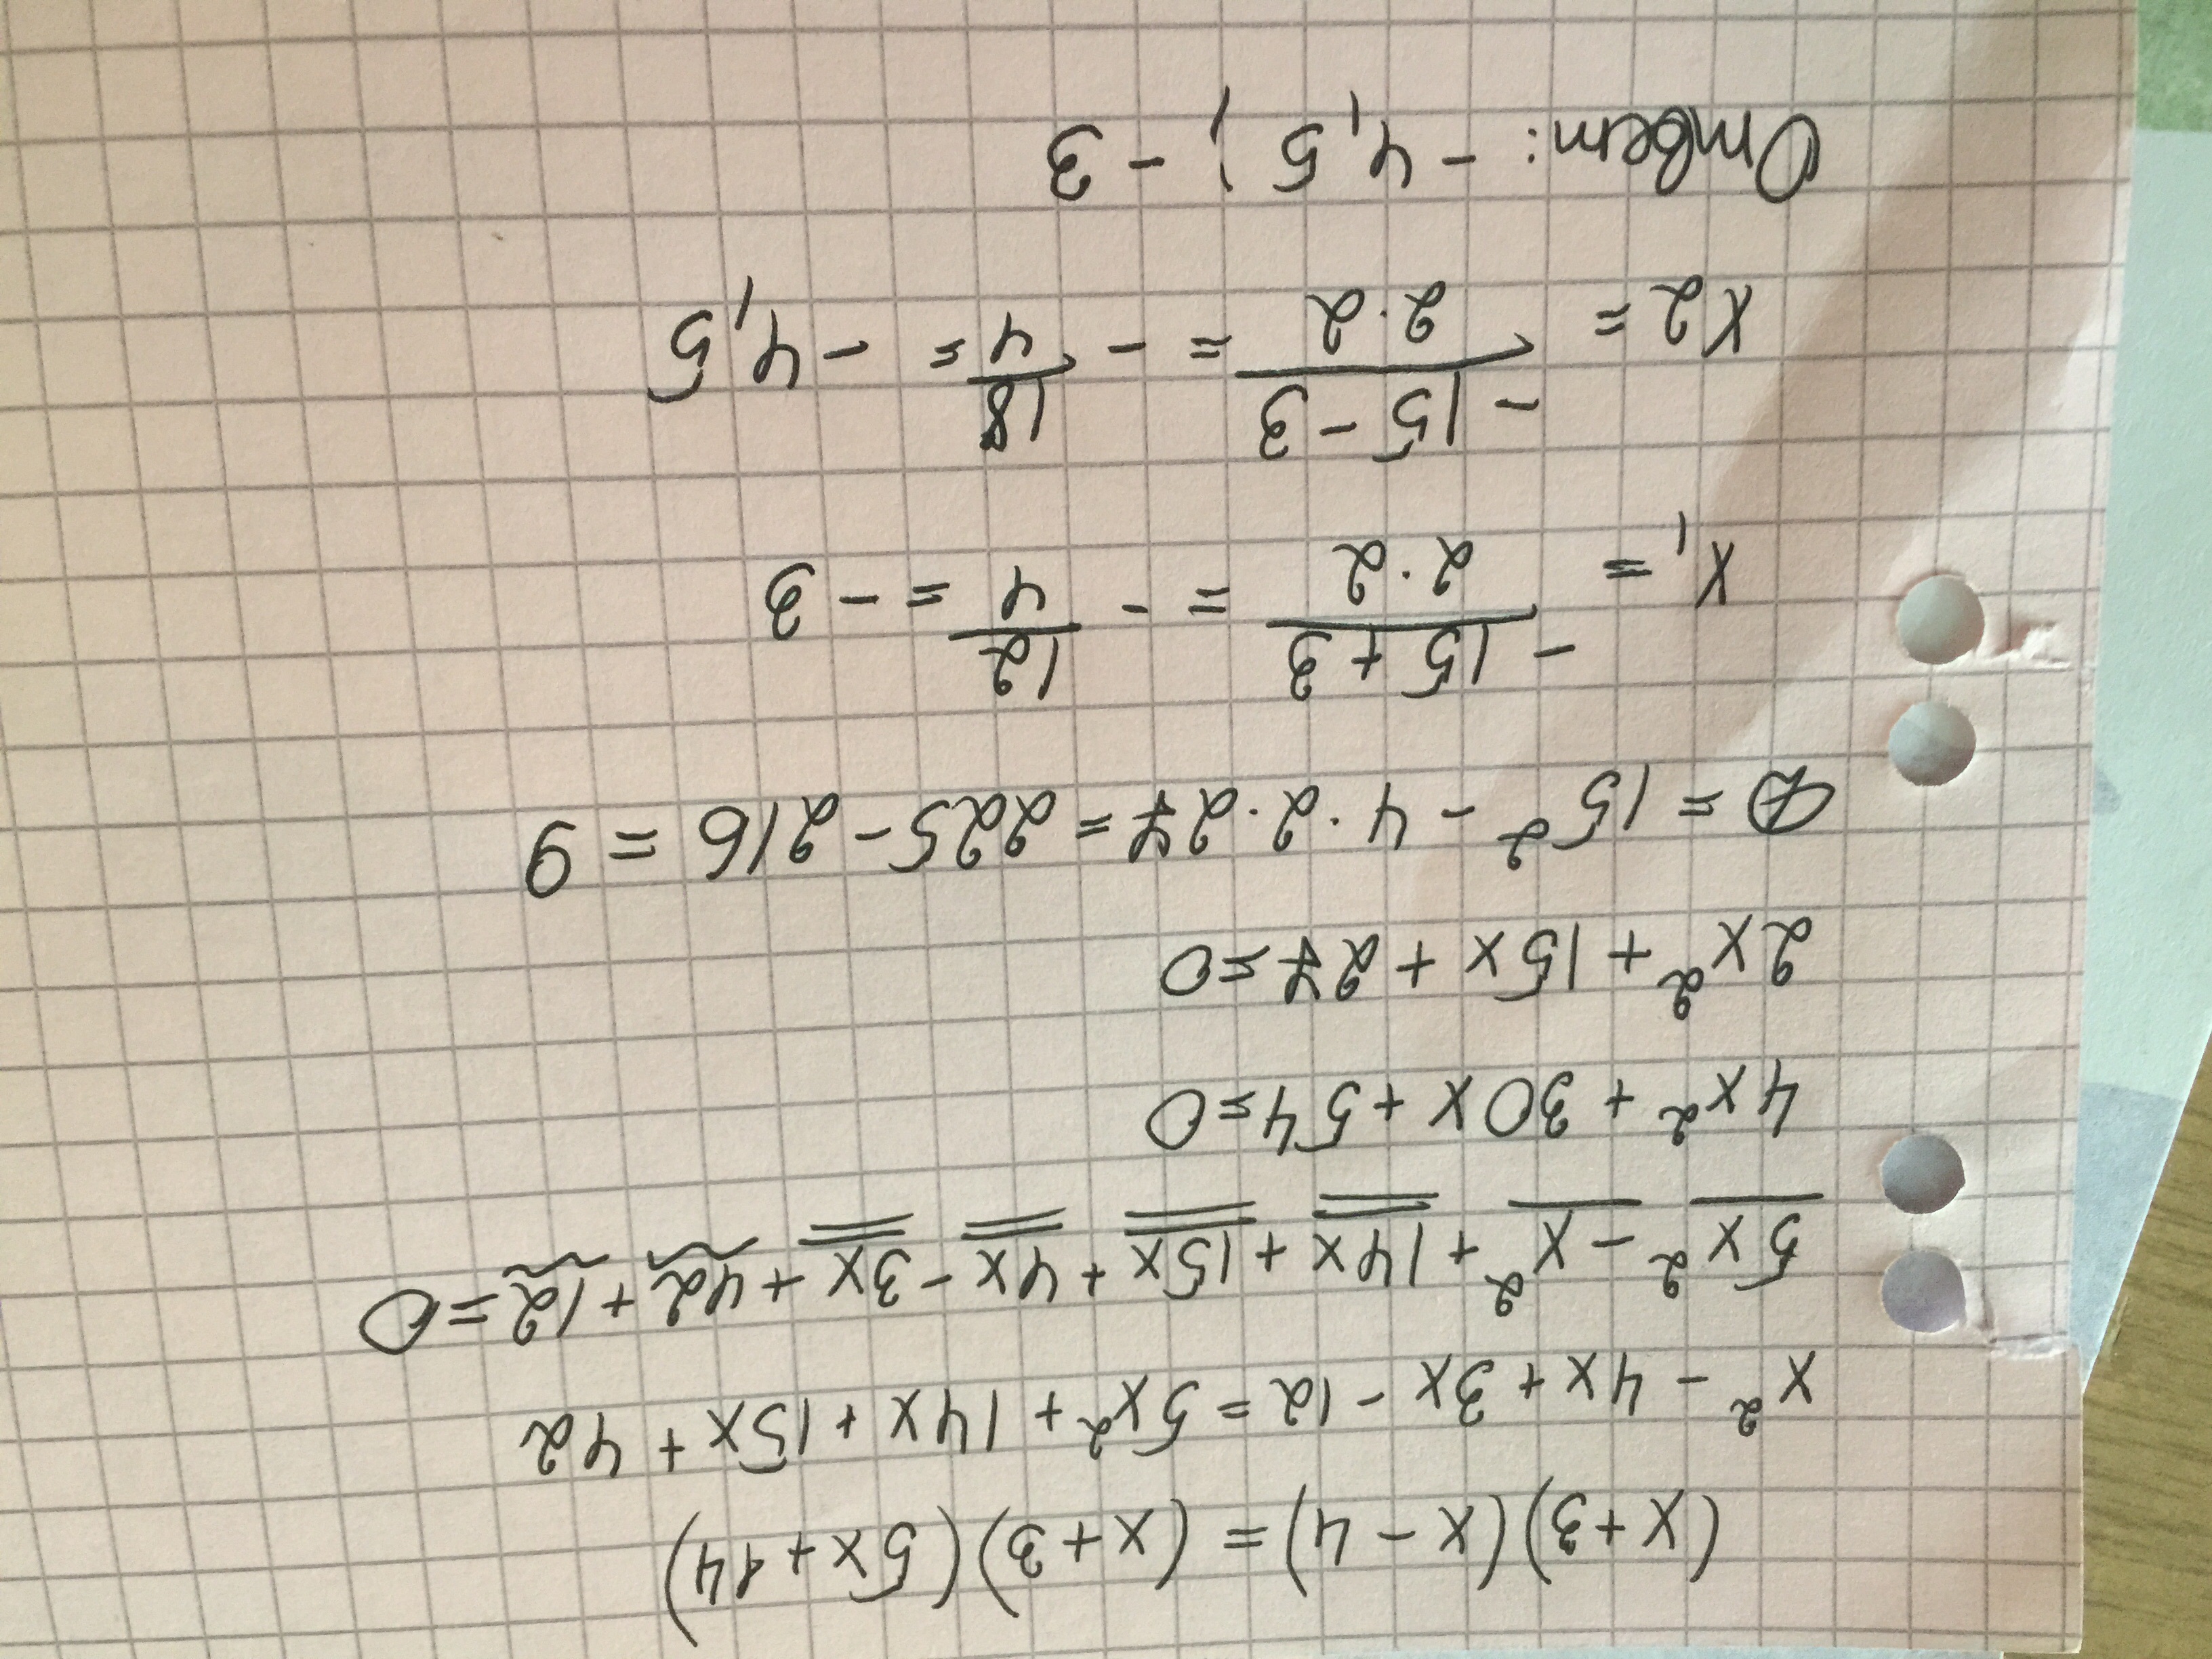 (x+3)(x-4)=(x+3)(5x+14)
x²-4x+3x-12=5x²+14x+15x+42
5x²-x²+14x+15x+4x-3x+42+12=0
4x²+30x+54=0
2x²+15x+27=0
D=15²-4·2·27=225-216=9
x₁=(-15+3)/(2·2)=-12/4=-3
x2=(-15-3)/(2·2)=-18/4=-4,5
Ответ: -4,5; -3